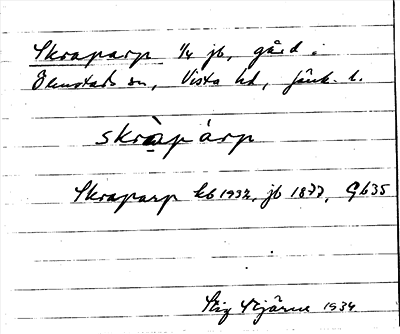 Skraparp 1/4 jb, gård i
Ölmstads sn, Vista hd, Jönk. l.
skràpárp
Skraparp kb 1932, jb 1877, Gb 35
Stig Stjärne 1934